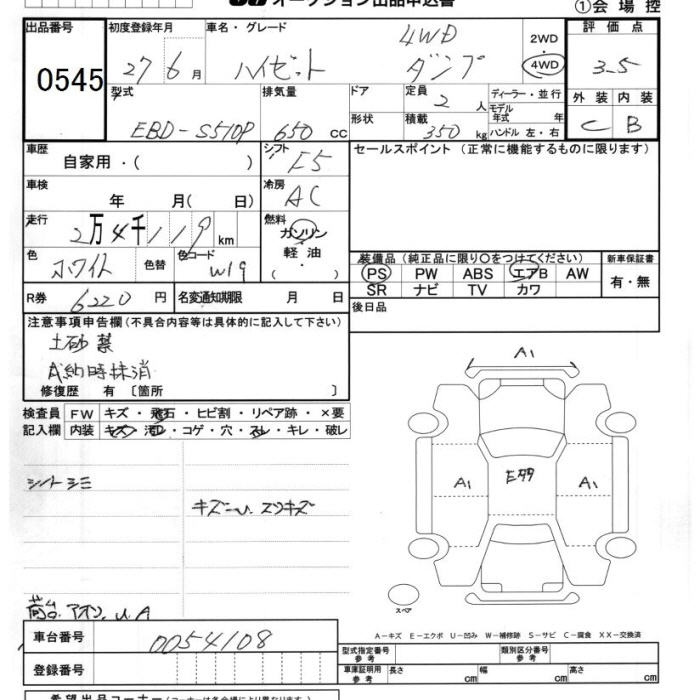 オークション出品申込書
①会場控
出品番号 初度登録年月 車名・グレード 2WD 評価点
0545 27年6月 ハイゼット 4WD ダンプ 4WD 3.5
型式 排気量 ドア 定員 2人 ディーラー・並行 外装 内装
EBD-S510P 650cc 形状 積載 350kg モデル年式 年 ハンドル 左・右 C B
車歴 シフト セールスポイント(正常に機能するものに限ります)
自家用・( ) F5
車検 冷房
年 月( 日) AC
走行 燃料
2万4千119km ガソリン
色 色替 色コード 軽油
ホワイト W19 ( ・ )
装備品(純正品に限り○をつけてください) 新車保証書
PS PW ABS エアB AW 有・無
SR ナビ TV カワ
R券 6220円 名変通知期限 月 日 後日品
注意事項申告欄(不具合内容等は具体的に記入して下さい)
土砂禁
A納時抹消
修復歴 有〔箇所 〕
検査員 FW キズ・飛石・ヒビ割・リペア跡・×要
記入欄 内装 キズ・汚レ・コゲ・穴・スレ・キレ・破レ
A1
A1 A1
シートシミ
キズ
スリキズ
荷台 U.A
スペア
A-キズ E-エクボ U-凹み W-補修跡 S-サビ C-腐食 XX-交換済
車台番号 0054108
型式指定番号 参考 類別区分番号 参考
登録番号
車庫証明用 参考 長さ cm 幅 cm 高さ cm
希望出品コーナー